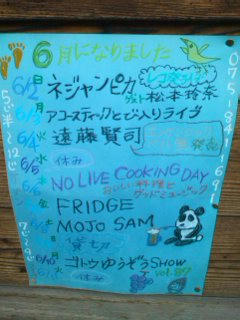 6月になりました
6/2日 ネジャンピカ レコ発ライブ
ゲスト 松本玲奈
6/3月 アコースティックとび入りライブ
6/4火 遠藤賢司 発売
6/5水 休み
6/6木 NO LIVE COOKING DAY
おいしい料理とグッドミュージック
FRIDGE
MOJO SAM
貸切
ゴトウゆうぞうSHOW vol.87
休み
075-841-1691
5じ半〜12じ